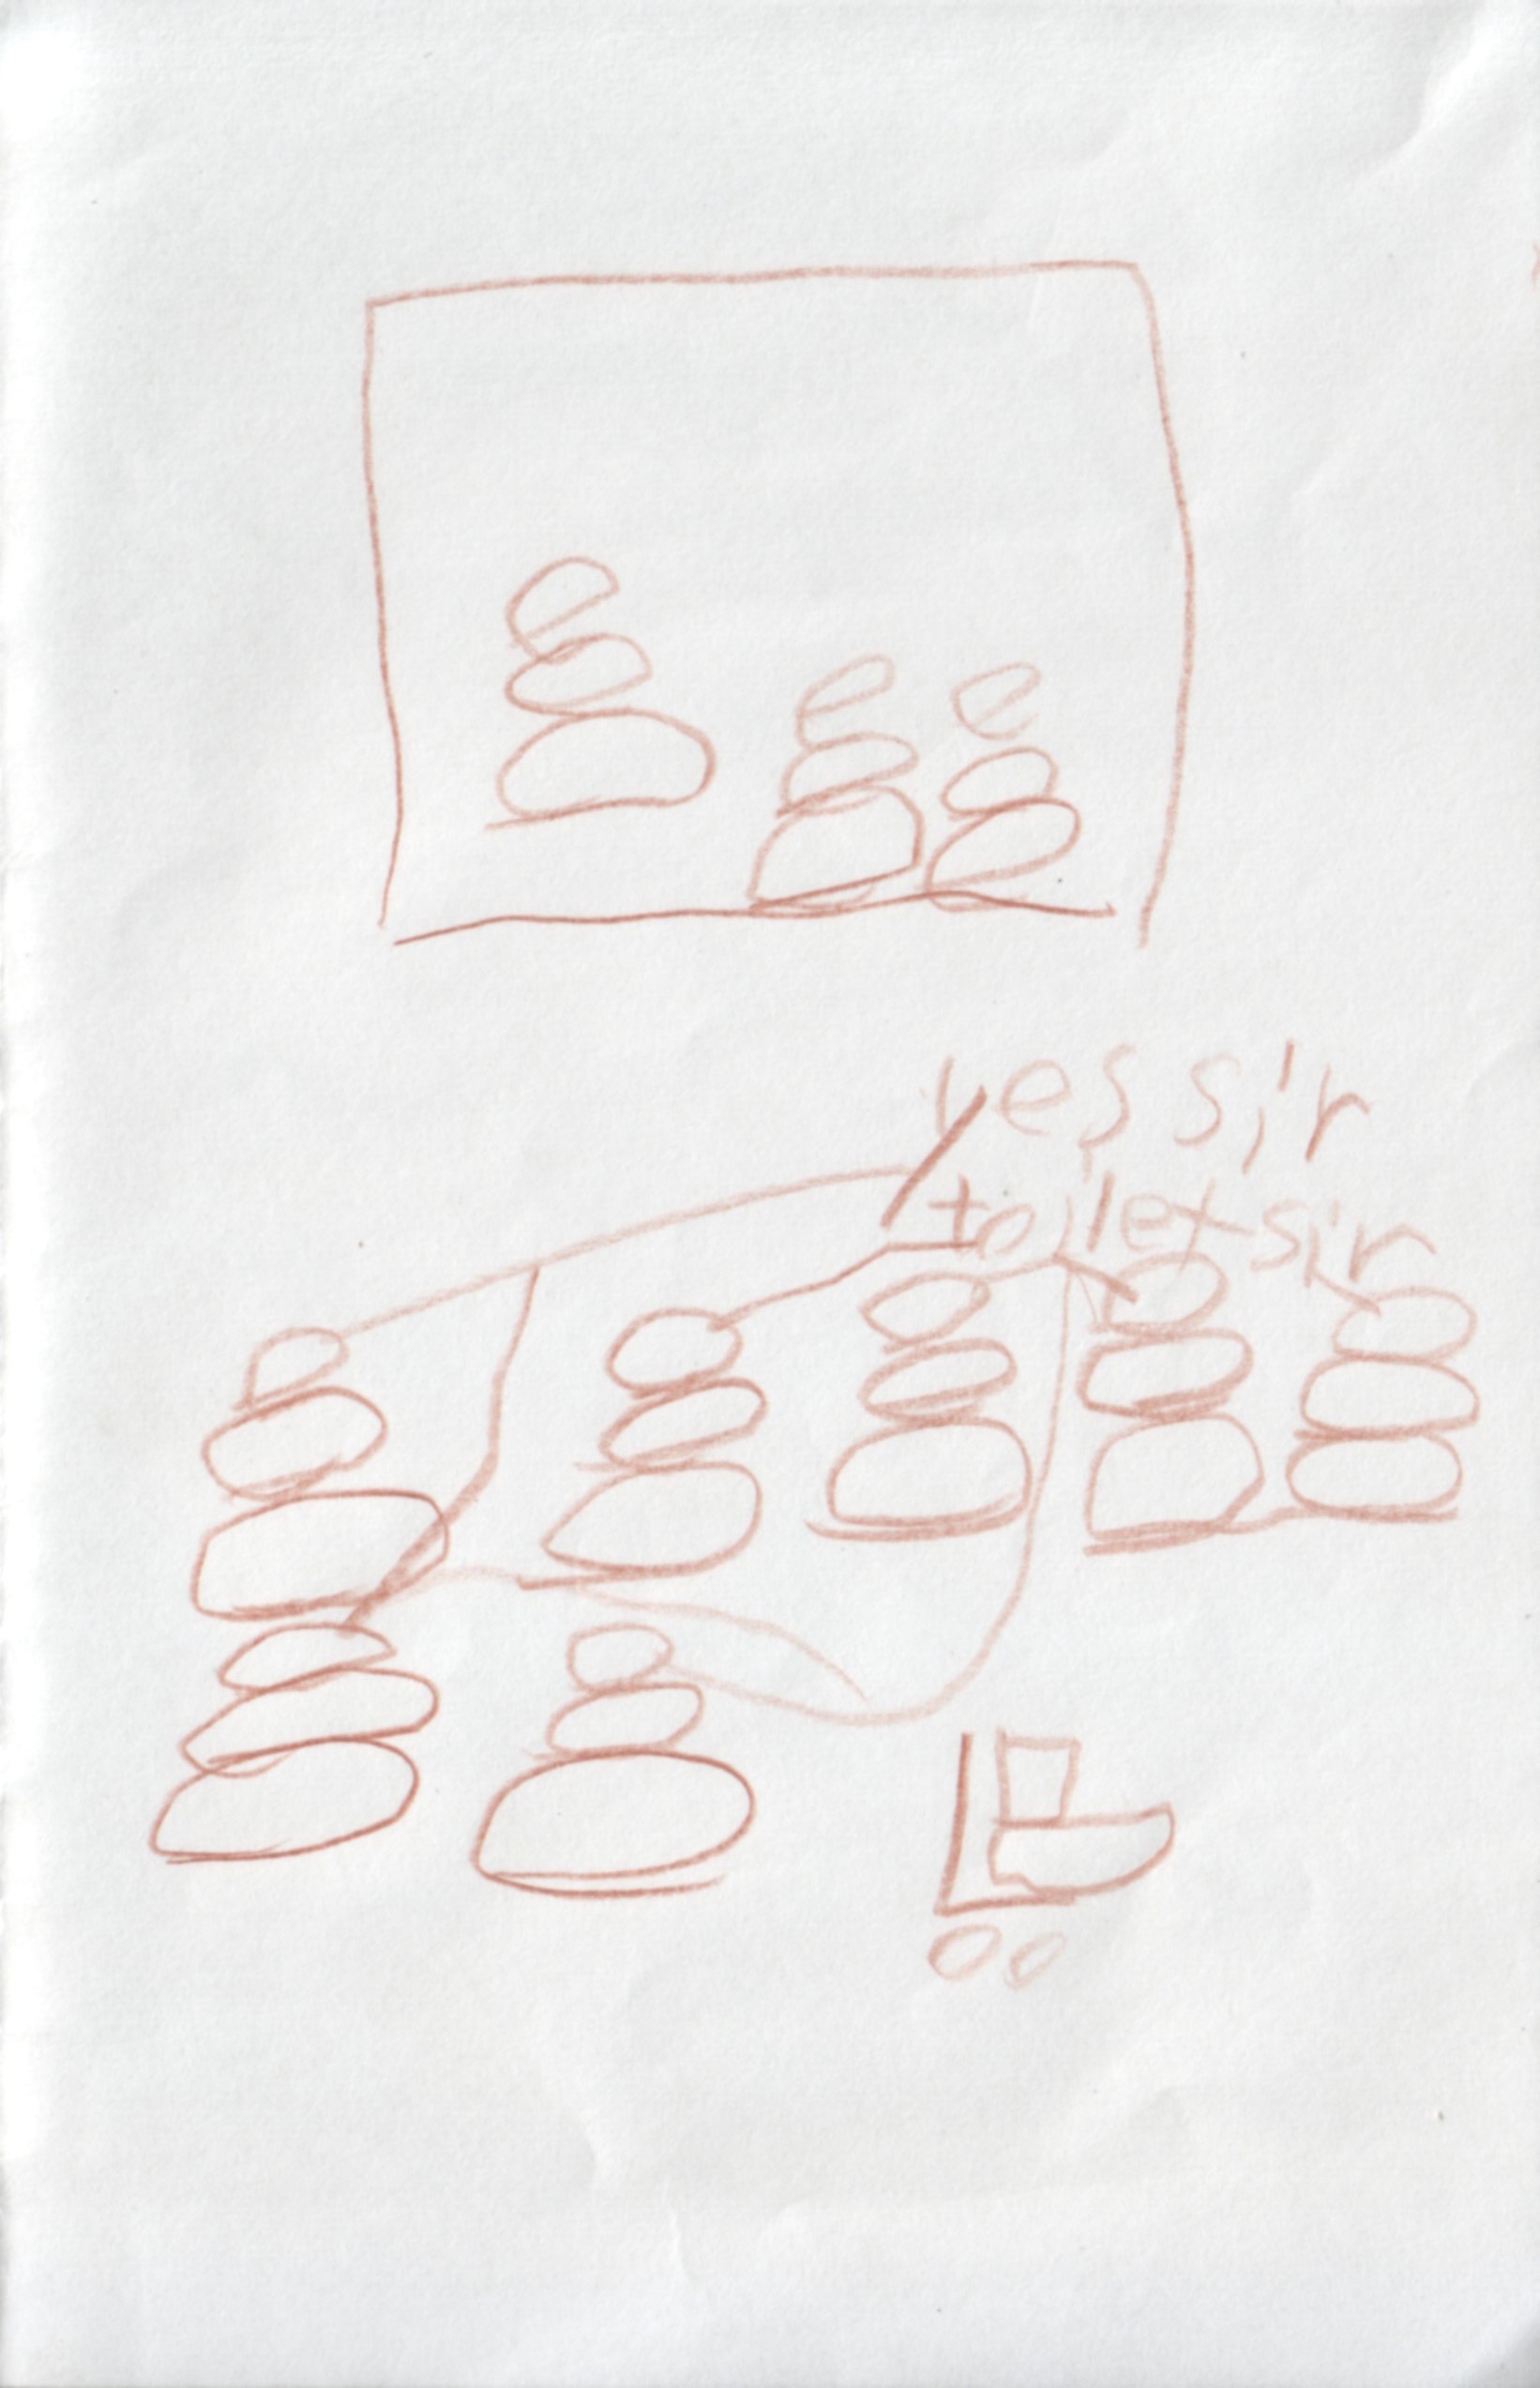 yes sir
toilet sir